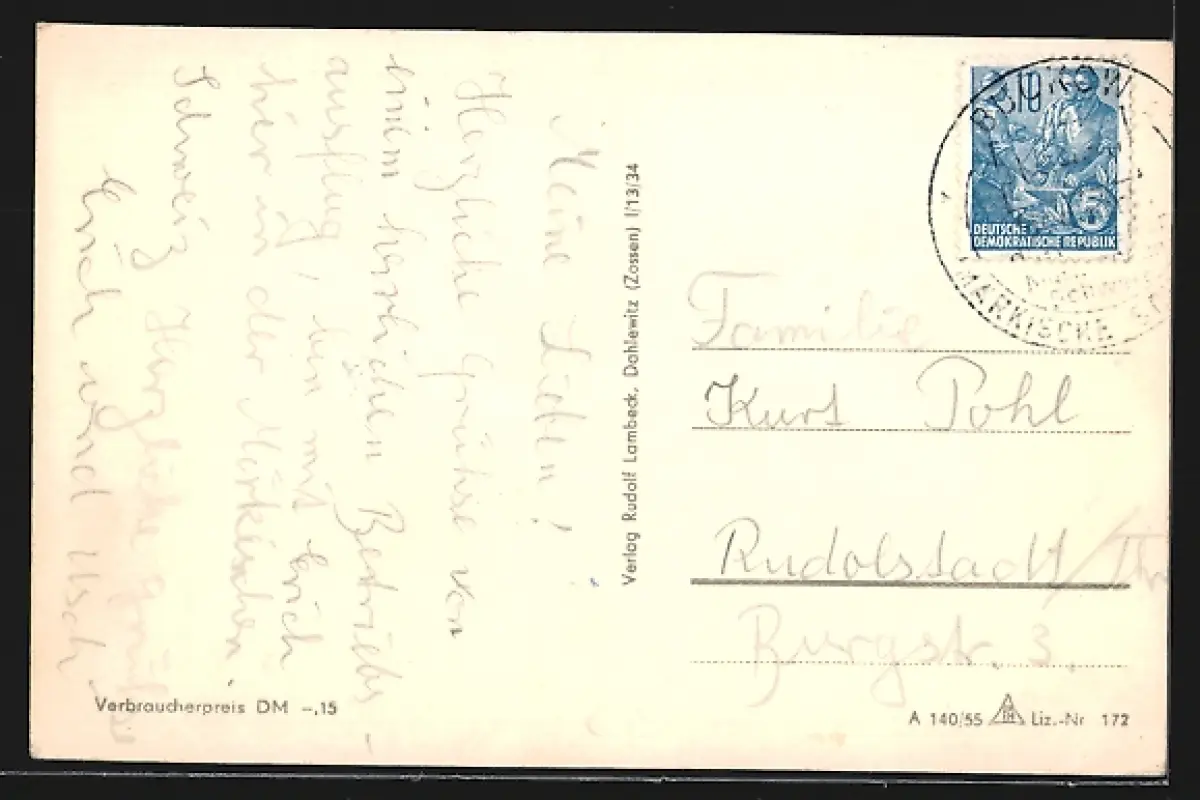 Meine Lieben!
Herzliche Grüße von
einem herrlichen Betriebs-
ausflug, bin mit Erich
hier in der Märkischen
Schweiz Herzliche Grüße
Erich und Usch
Verlag Rudolf Lambeck, Dahlewitz (Zossen) I/13/34
BUCKOW
MÄRKISCHE
10
5
DEUTSCHE
DEMOKRATISCHE REPUBLIK
Familie
Kurt Pohl
Rudolstadt/Thr
Burgstr. 3.
Verbraucherpreis DM –,15
A 140/55 Liz.-Nr 172